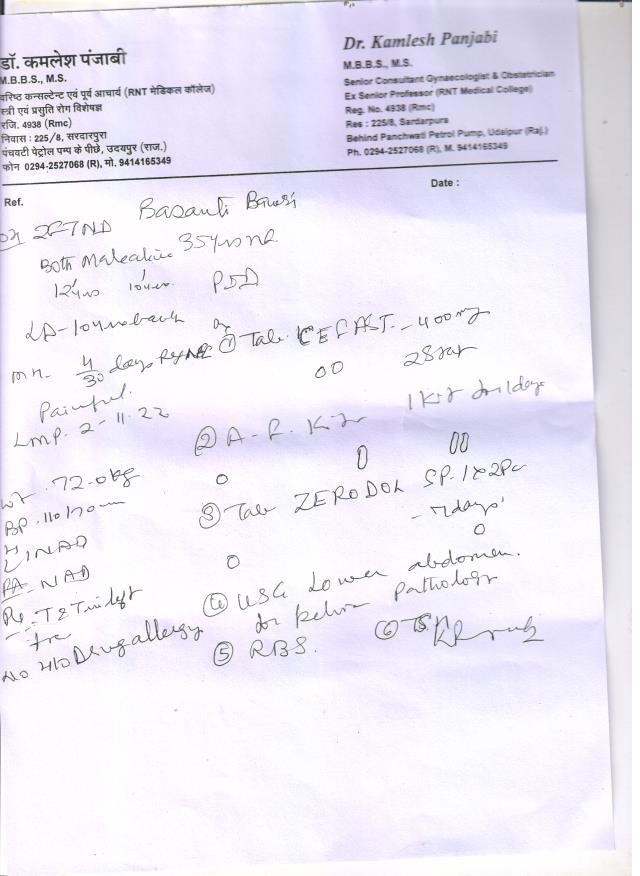 डॉ. कमलेश पंजाबी
M.B.B.S., M.S.
वरिष्ठ कन्सल्टेन्ट एवं पूर्व आचार्य (RNT मेडिकल कॉलेज)
स्त्री एवं प्रसुति रोग विशेषज्ञ
रजि. 4938 (Rmc)
निवास : 225/8, सरदारपुरा
पंचवटी पेट्रोल पम्प के पीछे, उदयपुर (राज.)
फोन 0294-2527068 (R), मो. 9414165349
Dr. Kamlesh Panjabi
M.B.B.S., M.S.
Senior Consultant Gynaecologist & Obstetrician
Ex Senior Professor (RNT Medical College)
Reg. No. 4938 (Rmc)
Res : 225/8, Sardarpura
Behind Panchwati Petrol Pump, Udaipur (Raj.)
Ph. 0294-2527068 (R), M. 9414165349
Ref.
Date :
Basanti
2FTND
Both Male alive 35yrs
12yrs 10yrs
LA-10yrs back
4/30 days
Painful.
LMP. 2-11-22
Wt. 72.0kg
BP. 110/70
NAD
PA-NAD
No H/O Drug allergy
① Tab. CEFAST-400mg
② A-F. Kit
1 Kit
③ Tab ZERODOL SP-1
- 7days
④ USG Lower abdomen.
for Pelvic Pathology
⑤ RBS.
⑥